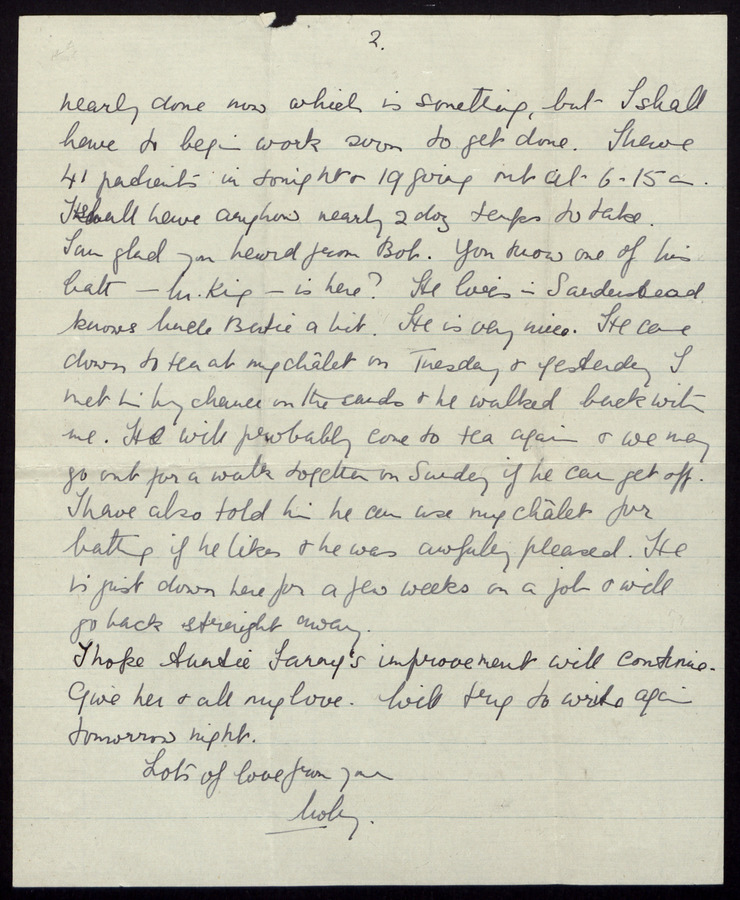 2.
nearly done now which is something, but I shall
have to begin work soon to get done. I have
41 patients in tonight & 19 going out at 6-15 a.
I shall have anyhow nearly 2 doz temps to take.
I am glad you heard from Bob. You know one of his
batt — Mr. King — is here? He lives in Sanderstead
knows Uncle Bertie a bit. He is very nice. He came
down to tea at my châlet on Tuesday & yesterday I
met him by chance on the sands & he walked back with
me. He will probably come to tea again & we may
go out for a walk together on Sunday if he can get off.
I have also told him he can use my châlet for
bathing if he likes & he was awfully pleased. He
is just down here for a few weeks on a job & will
go back straight away.
I hope Auntie Fanny's improvement will continue.
Give her & all my love. Will try to write again
tomorrow night.
Lots of love from your